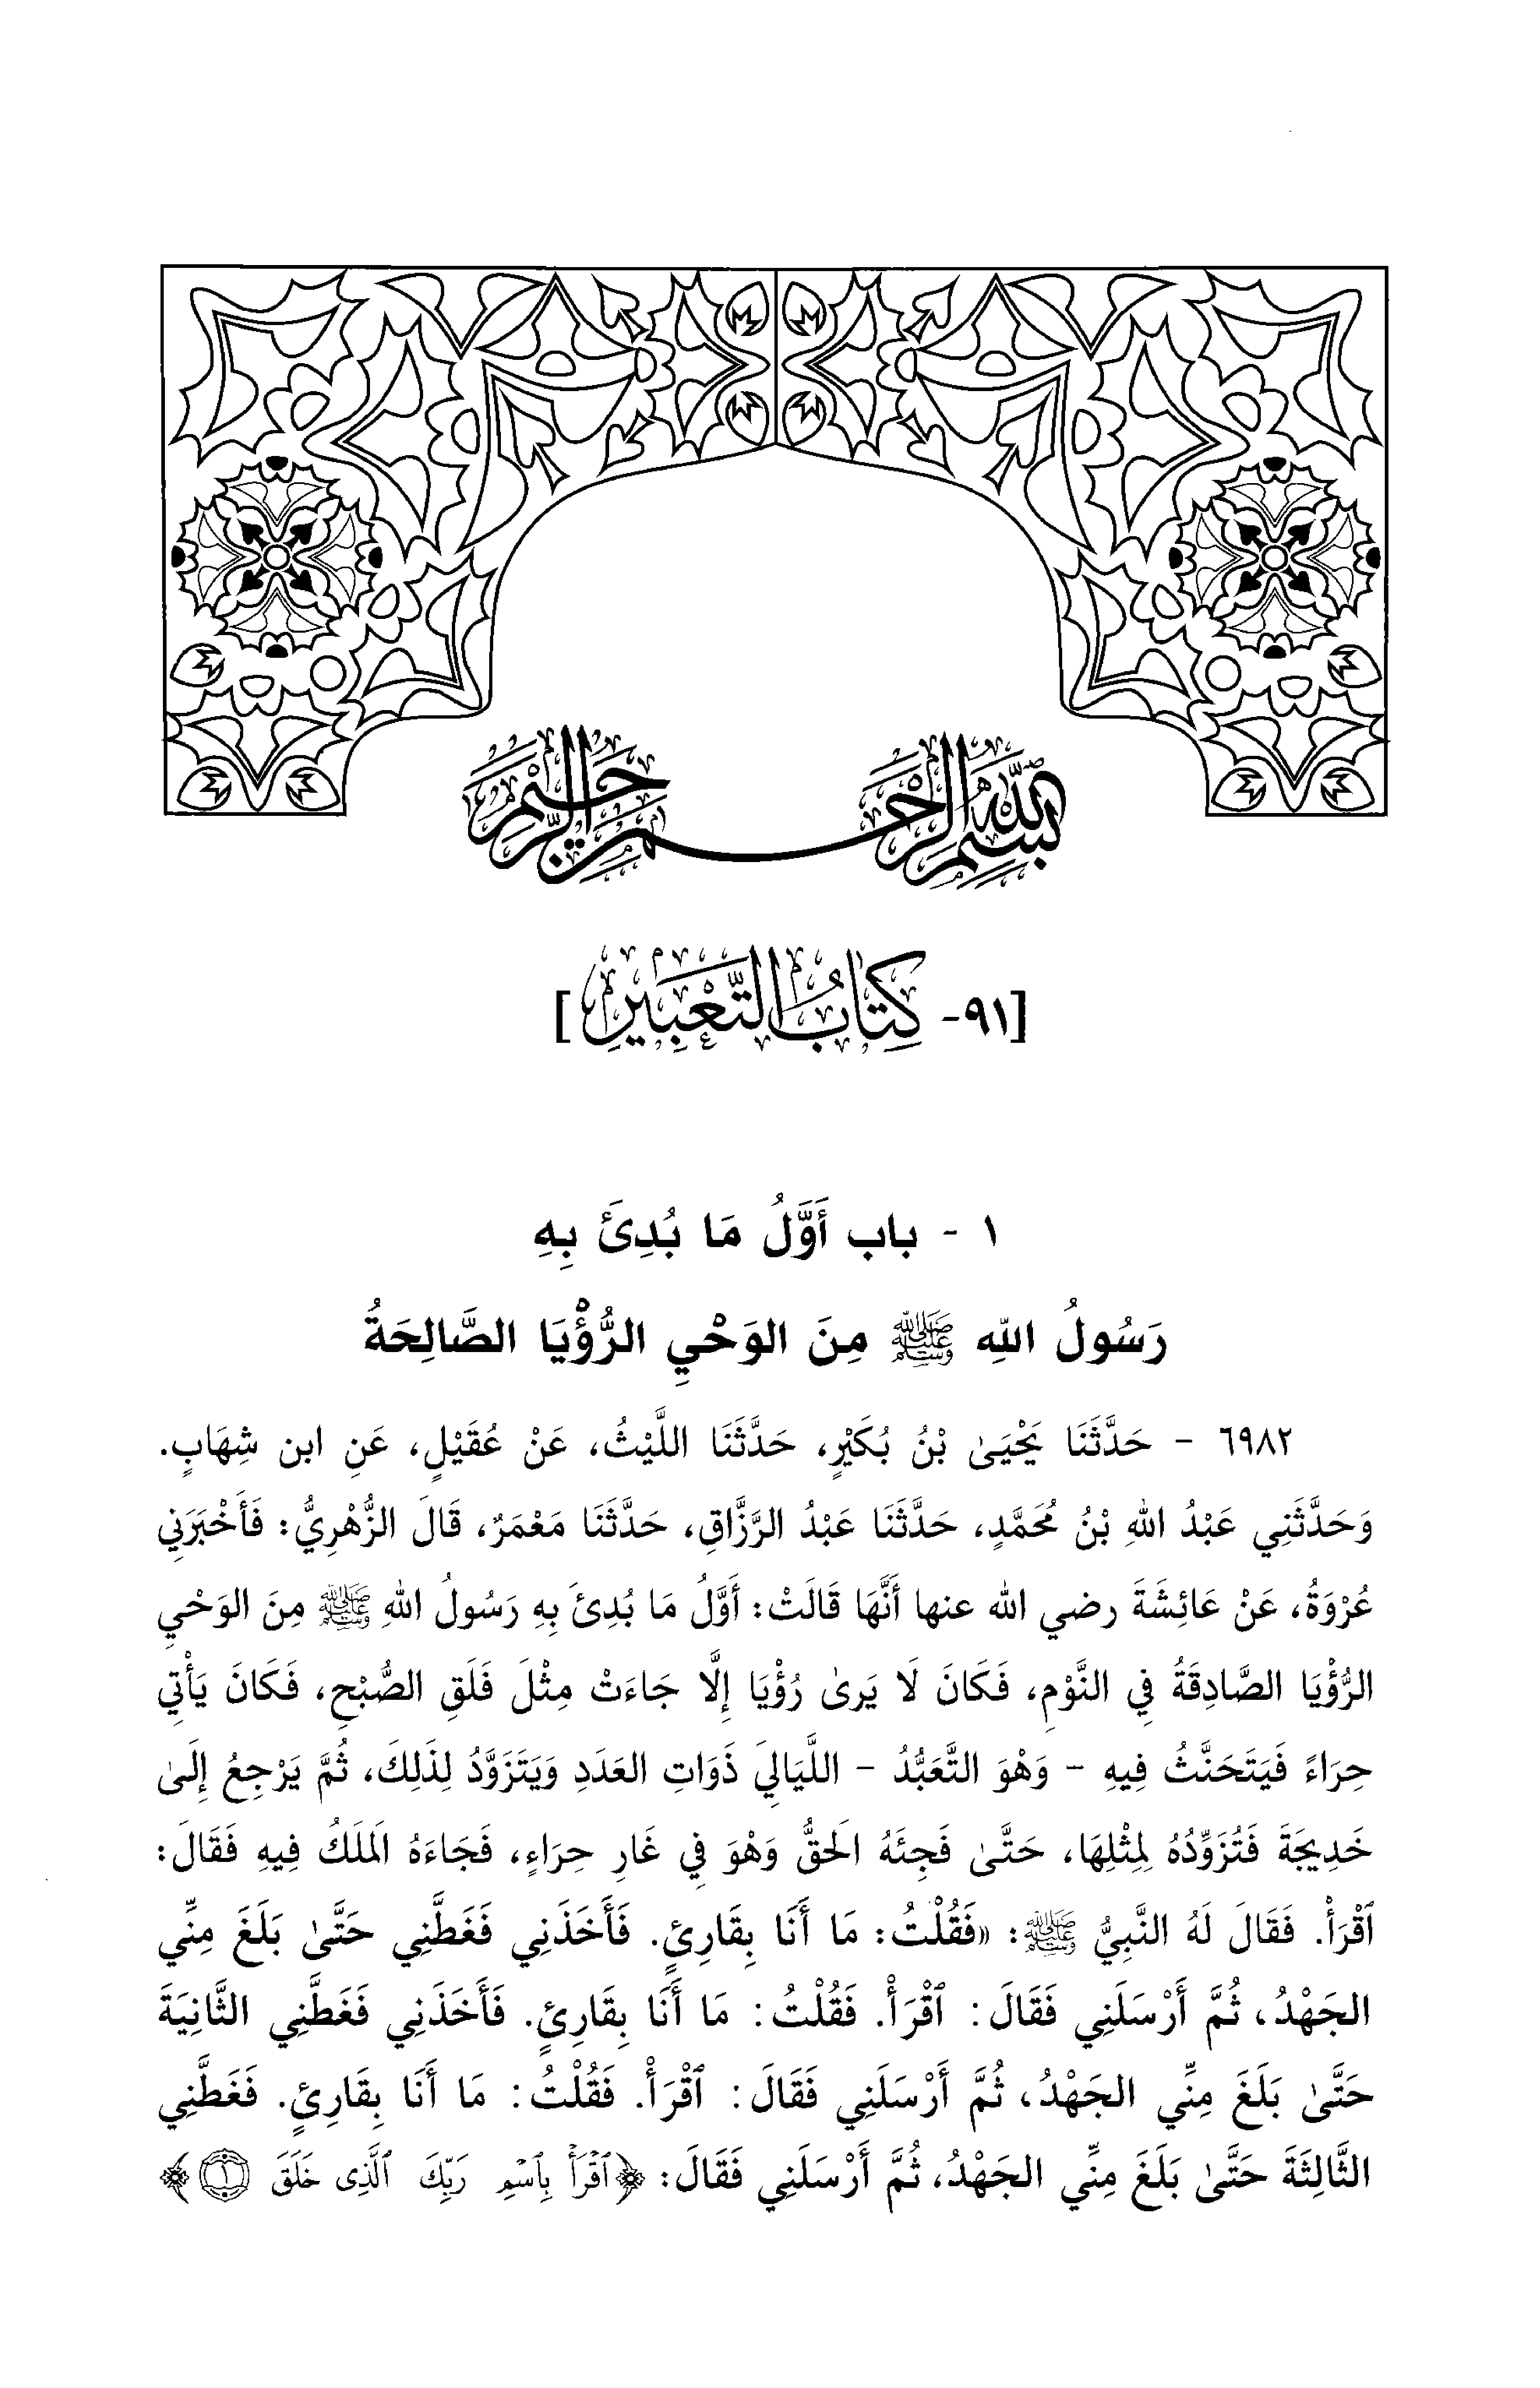 بِسْمِ اللهِ الرَّحْمٰنِ الرَّحِيْمِ
[٩١- كِتَابُ التَّعْبِيْرِ]
١ - باب أَوَّلُ مَا بُدِئَ بِهِ
رَسُولُ اللهِ ﷺ مِنَ الوَحْيِ الرُّؤْيَا الصَّالِحَةُ
٦٩٨٢ - حَدَّثَنَا يَحْيَىٰ بْنُ بُكَيْرٍ، حَدَّثَنَا اللَّيْثُ، عَنْ عُقَيْلٍ، عَنِ ابن شِهَابٍ.
وَحَدَّثَنِي عَبْدُ اللهِ بْنُ مُحَمَّدٍ، حَدَّثَنَا عَبْدُ الرَّزَّاقِ، حَدَّثَنَا مَعْمَرٌ، قَالَ الزُّهْرِيُّ: فَأَخْبَرَنِي
عُرْوَةُ، عَنْ عَائِشَةَ رضي الله عنها أَنَّهَا قَالَتْ: أَوَّلُ مَا بُدِئَ بِهِ رَسُولُ اللهِ ﷺ مِنَ الوَحْيِ
الرُّؤْيَا الصَّادِقَةُ فِي النَّوْمِ، فَكَانَ لَا يَرىٰ رُؤْيَا إِلَّا جَاءَتْ مِثْلَ فَلَقِ الصُّبْحِ، فَكَانَ يَأْتِي
حِرَاءً فَيَتَحَنَّثُ فِيهِ - وَهْوَ التَّعَبُّدُ - اللَّيَالِيَ ذَوَاتِ العَدَدِ وَيَتَزَوَّدُ لِذَلِكَ، ثُمَّ يَرْجِعُ إِلَىٰ
خَدِيجَةَ فَتُزَوِّدُهُ لِمِثْلِهَا، حَتَّىٰ فَجِئَهُ الَحقُّ وَهْوَ فِي غَارِ حِرَاءٍ، فَجَاءَهُ الَملَكُ فِيهِ فَقَالَ:
ٱقْرَأْ. فَقَالَ لَهُ النَّبِيُّ ﷺ: «فَقُلْتُ: مَا أَنَا بِقَارِئٍ. فَأَخَذَنِي فَغَطَّنِي حَتَّىٰ بَلَغَ مِنِّي
الجَهْدُ، ثُمَّ أَرْسَلَنِي فَقَالَ: ٱقْرَأْ. فَقُلْتُ: مَا أَنَا بِقَارِئٍ. فَأَخَذَنِي فَغَطَّنِي الثَّانِيَةَ
حَتَّىٰ بَلَغَ مِنِّي الجَهْدُ، ثُمَّ أَرْسَلَنِي فَقَالَ: ٱقْرَأْ. فَقُلْتُ: مَا أَنَا بِقَارِئٍ. فَغَطَّنِي
الثَّالِثَةَ حَتَّىٰ بَلَغَ مِنِّي الجَهْدُ، ثُمَّ أَرْسَلَنِي فَقَالَ: ﴿ٱقْرَأْ بِٱسْمِ رَبِّكَ ٱلَّذِى خَلَقَ ١﴾